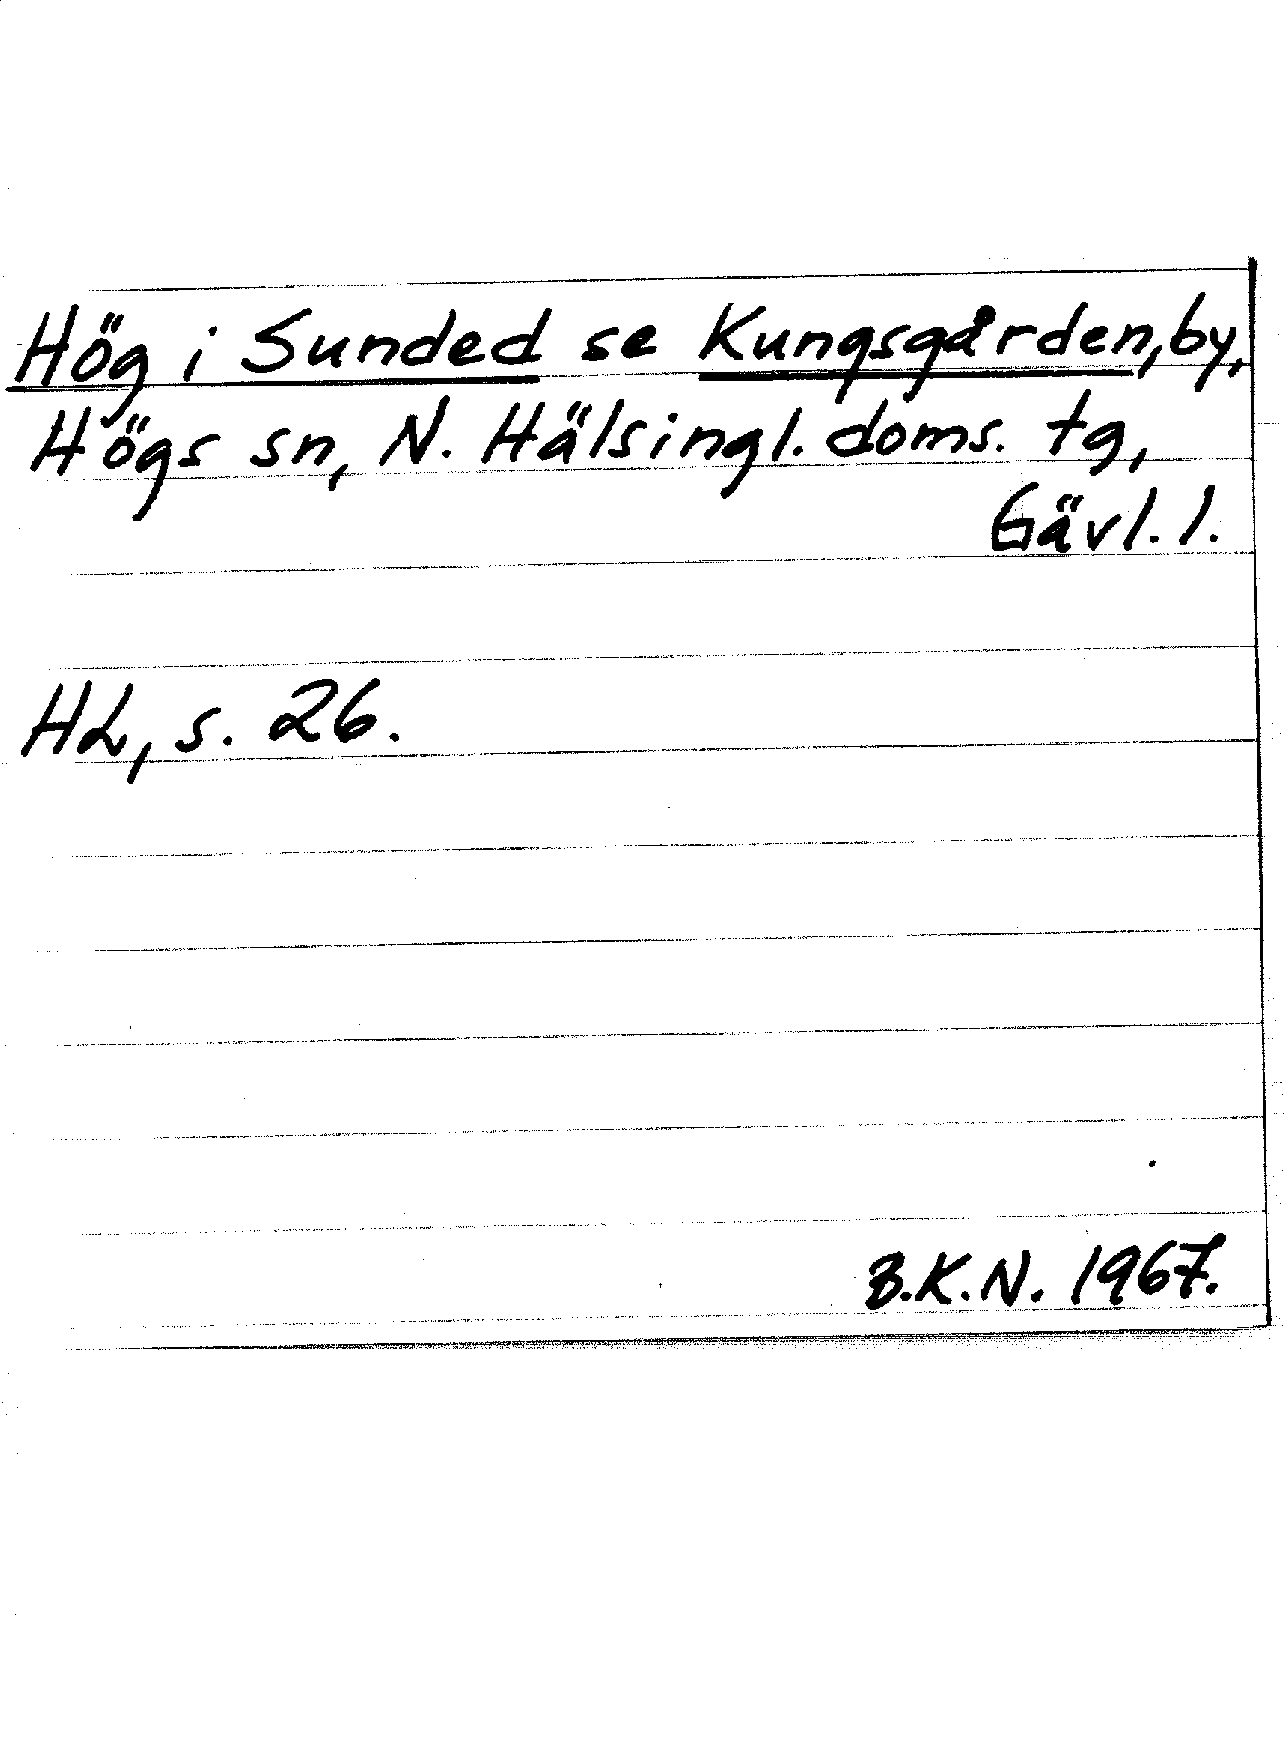 Hög i Sunded se Kungsgården, by,
Högs sn, N. Hälsingl. doms. tg,
Gävl. l.
HL, s. 26.
B.K.N. 1967.